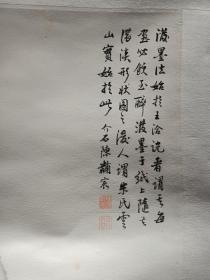 潑墨法始於王洽說者謂其每
盡必飲至醉潑墨于紙上隨其
濃淡形狀圖之後人謂朱氏雲
山實始於此 介石陳黼宸